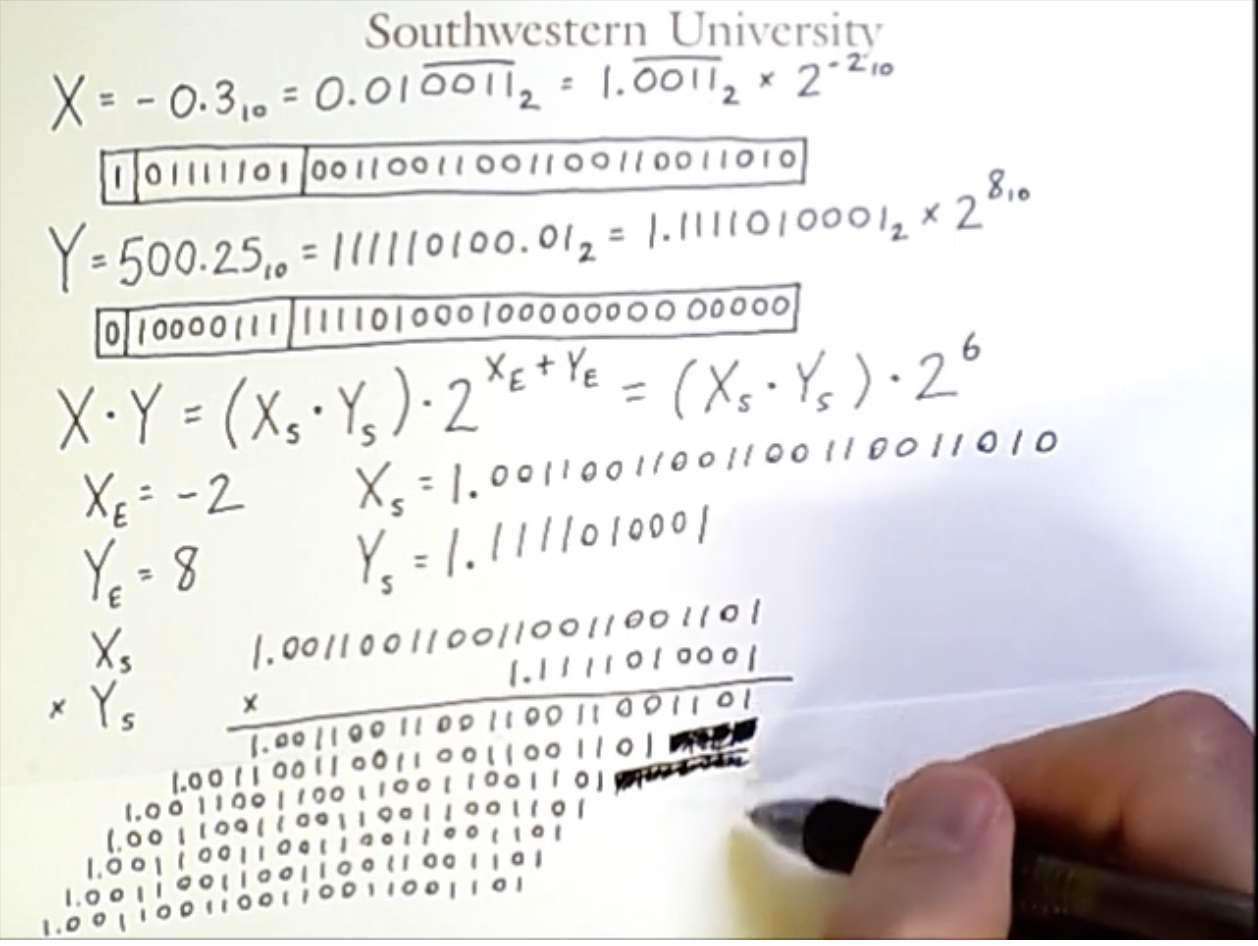 Southwestern University
X = - 0.3₁₀ = 0.010̅0̅1̅1̅₂ = 1.0̅0̅1̅1̅₂ × 2⁻²₁₀
1 01111101 00110011001100110011010
Y = 500.25₁₀ = 111110100.01₂ = 1.1111010001₂ × 2⁸₁₀
0 10000111 11110100010000000000000
X · Y = (X_S · Y_S) · 2^(X_E + Y_E) = (X_S · Y_S) · 2⁶
X_E = -2 X_S = 1.00110011001100110011010
Y_E = 8 Y_S = 1.1111010001
X_S 1.0011001100110011001101
× Y_S × 1.1111010001
1.0011001100110011001101
1.0011001100110011001101
1.0011001100110011001101
1.0011001100110011001101
1.0011001100110011001101
1.0011001100110011001101
1.0011001100110011001101